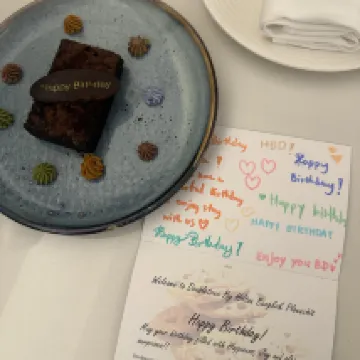 Happy Birthday
Birthday HBD!
Happy
Birthday!
Birthday
enjoy stay
with us
Happy birthday
HAPPY BIRTHDAY
Happy Birthday!
Enjoy you BD
Welcome to DoubleTree By Hilton
Happy Birthday!
May your birthday filled with Happiness, Joy and